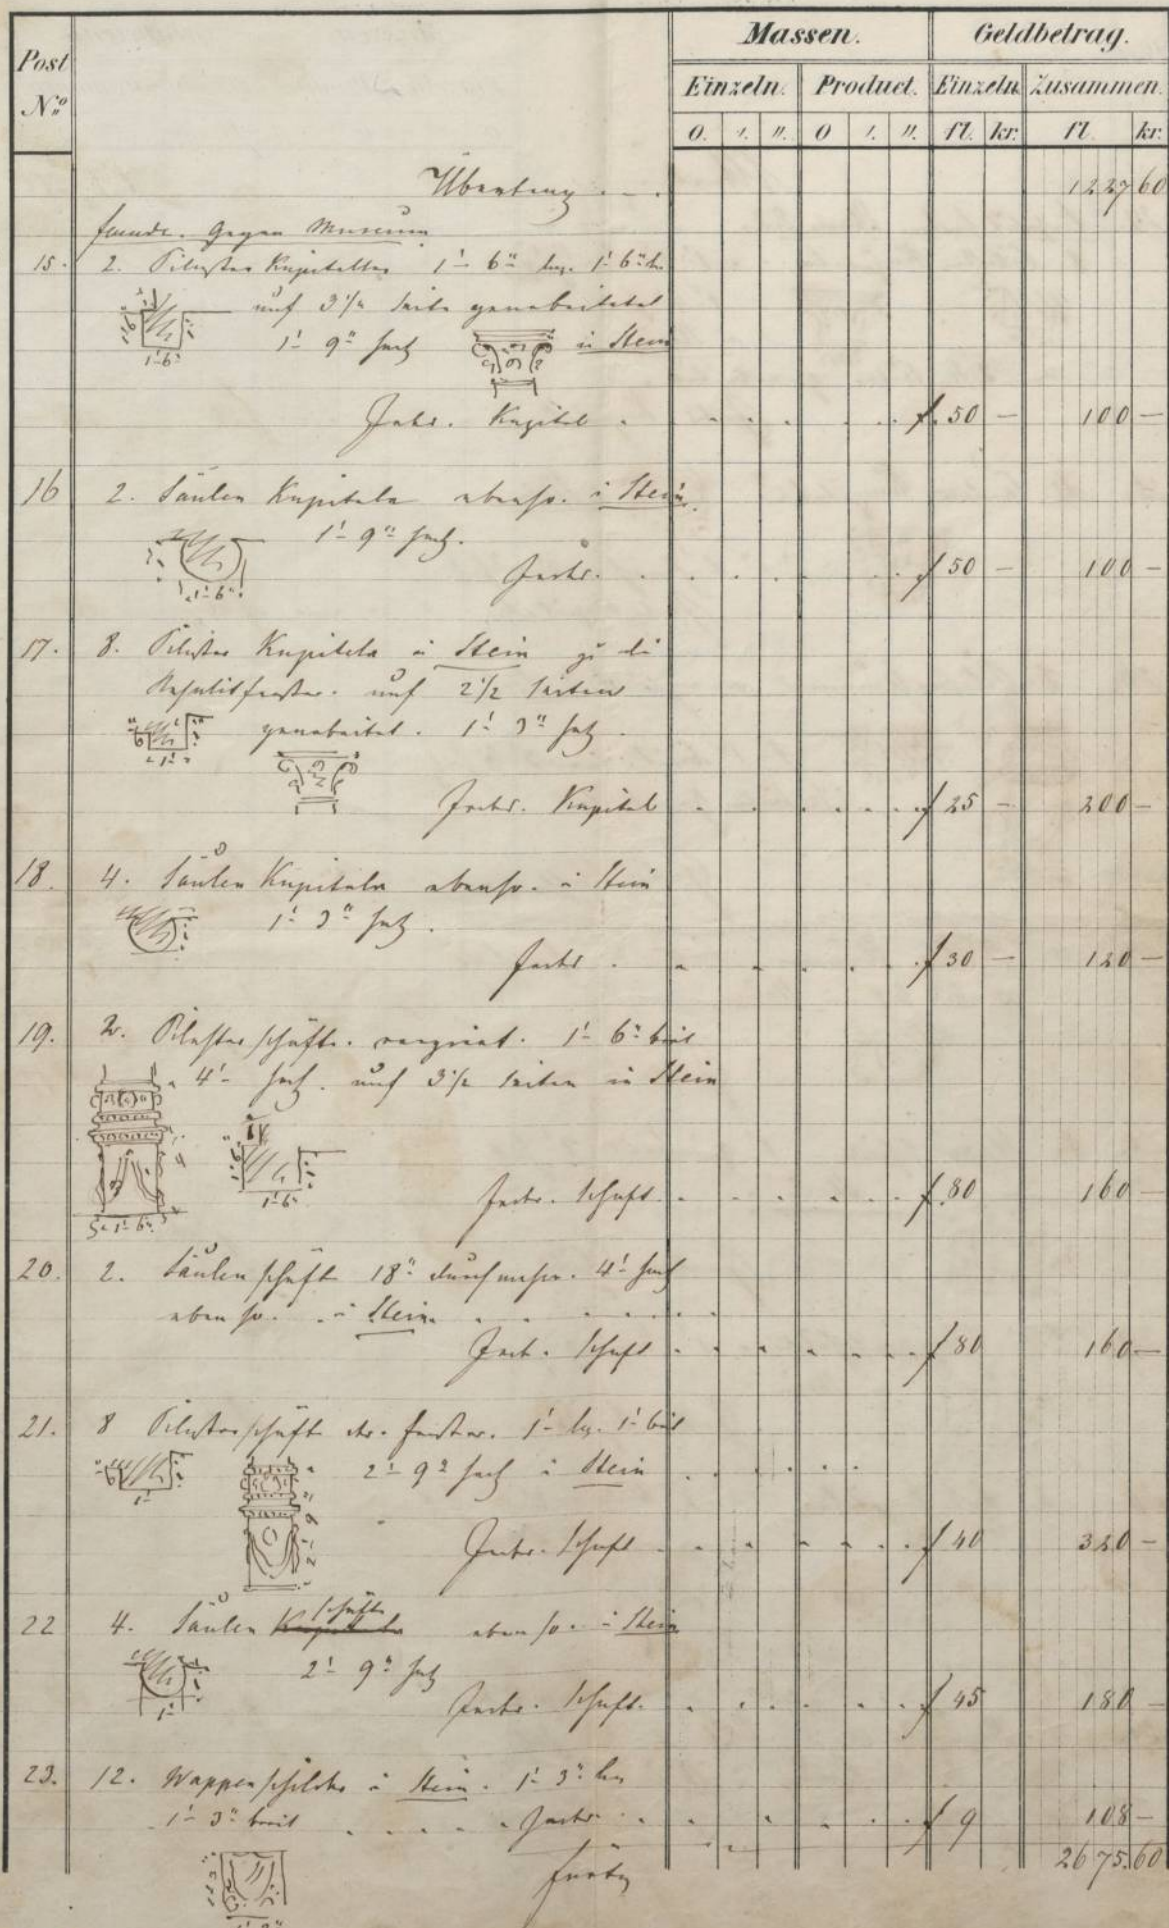 Post
No
Massen.
Geldbetrag.
Einzeln.
Product.
Einzeln
Zusammen.
0. ,. ,,. 0 ,. ,,. fl. kr. fl. kr.
Übertrag . . . 1227 60
Gegen Museum
15. 2. Pilaster Kapitäller 1' 6" 1' 6"
auf 3 1/2 Seite gearbeitet
1'6"
1' 9" hoch in Stein
Jedes. Kapitel . f. 50 — 100 —
16 2. Säulen Kapitäle ebenso. in Stein
1' 9" hoch.
1'6"
Jedes. f 50 — 100 —
17. 8. Pilaster Kapitäle in Stein zu die
Risalitfenster. auf 2 1/2 Seiten
gearbeitet. 1' 3" hoch.
Jedes. Kapitel f 25 — 200 —
18. 4. Säulen Kapitäle ebenso. in Stein
1' 3" hoch.
Jedes . f 30 — 120 —
19. 2. Pilaster Schäfte. verziert. 1' 6" breit
4' hoch. auf 3 1/2 Seiten in Stein
1' 6"
1' 6"
Jeder. Schaft. f. 80 160 —
20. 2. Säulen Schaft 18" durchmesser. 4' hoch
eben so. in Stein . . .
Jed. Schaft f 80 160 —
21. 8 Pilasterschaft der. Fenster. 1' lg. 1' breit
2' 9" hoch in Stein
1'
2' 9"
Jeder. Schaft f 40 320 —
22 4. Säulen Schäfte eben so. in Stein
2' 9" hoch
1'
Jeder. Schaft. f 45 180 —
23. 12. Wappenschilder in Stein. 1' 3"
1' 3" breit . . . . Jedes . f 9 108 —
2675.60
Fürtrag